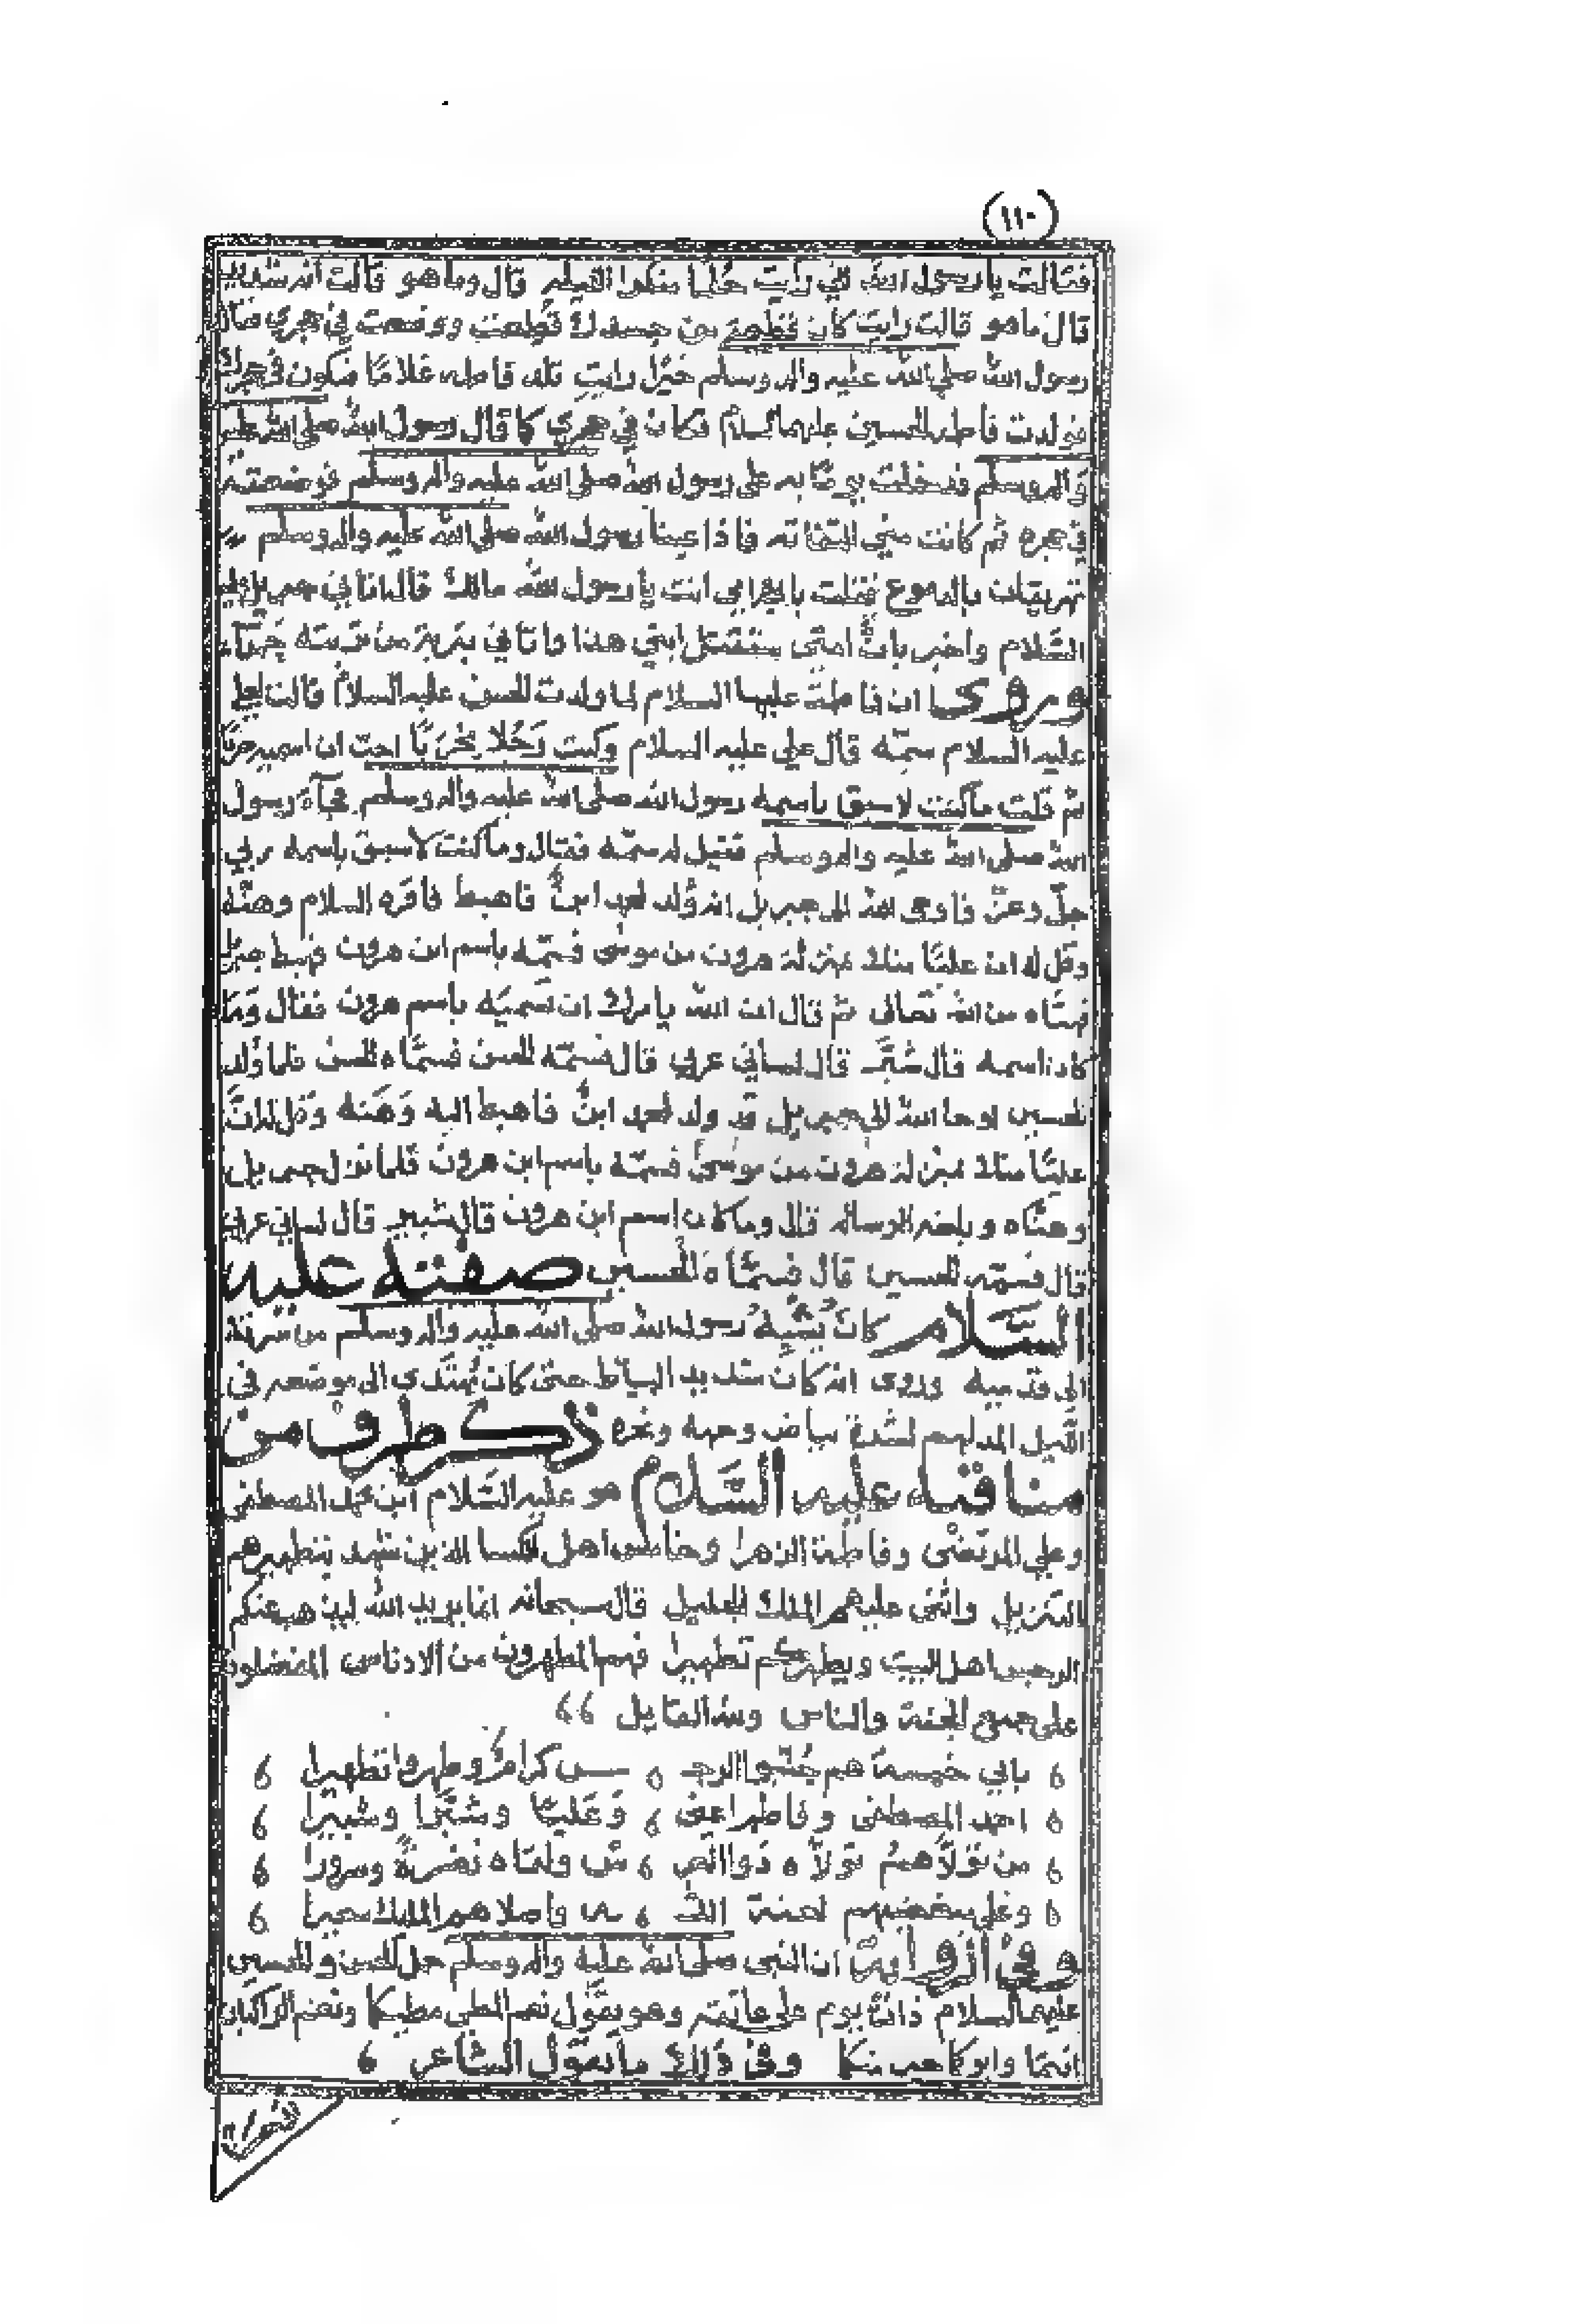 (١١٠)
فقالت يا رسول الله اني رايت حلما منكرا الليله قال وما هو قالت انه شديد
قال ما هو قالت رايت كان قطعة من جسدك قطعت ووضعت في حجري فقال
رسول الله صلى الله عليه واله وسلم خيرا رايت تلد فاطمه غلاما فيكون في حجرك
فولدت فاطمه الحسين عليهما السلام فكان في حجري كما قال رسول الله صلى الله عليه
واله وسلم فدخلت يوما به على رسول الله صلى الله عليه واله وسلم فوضعته
في حجره ثم كانت مني التفاته فاذا عينا رسول الله صلى الله عليه واله وسلم
تهريقان بالدموع فقلت بابي وامي انت يا رسول الله مالك قال اتاني جبريل عليه
السلام واخبرني بان امتي ستقتل ابني هذا واتاني بتربة من تربته حمرآء
وروي ان فاطمة عليها السلام لما ولدت الحسن عليه السلام قالت لعلي
عليه السلام سمّه قال علي عليه السلام وكنت رَجُلا مِحْرَبًا احبّ ان اسميه حربا
ثم قلت ما كنت لاسبق باسمه رسول الله صلى الله عليه واله وسلم فجآء رسول
الله صلى الله عليه واله وسلم فقيل له سمّه فقال وما كنت لاسبق باسمه ربي
جلّ وعزّ فاوحى الله الى جبريل انه وُلد لمحمد ابنٌ فاهبط فاقره السلام وهنّه
وقل له ان عليّا منك بمنزلة هرون من موسى فسمّه باسم ابن هرون فهبط جبريل
فهنّاه من الله تعالى ثم قال ان الله يامرك ان تسميَه باسم هرون فقال وَما
كان اسمه قال شَبَّر قال لساني عربي قال فسمّه الحسن فسمّاه الحسن فلما وُلد
الحسين اوحا الله الى جبريل قد ولد لمحمد ابنٌ فاهبط اليه وَهَنه وَقل له انَّ
عليّا منك بمنزلة هرون من موسىٰ فسمّه باسم ابن هرون فلما نزل جبريل
وهنّاه وبلغه الرساله قال وما كان اسم ابن هرون قال شبير قال لساني عربي
قال فسمّه الحسين قال فسمّاه الحسين صفته عليه
السَّلام كانَ يُشبِهُ رسول الله صلى الله عليه واله وسلم من سرته
الى قدميه وروي انه كان شديد البياض حتى كان يُهتَدى الى موضعه في
الليل المدلهم لشدة بياض وجهه ونحره ذكر طرف من
مناقبه عليه السَّلام هو عليه السّلام ابن محمد المصطفى
وعلي المرتضى وفاطمة الزهرا وخامس اهل الكسا الذين شهد بتطهيرهم
التنزيل واثنى عليهم الملك الجليل قال سبحانه انما يريد الله ليذهب عنكم
الرجس اهل البيت ويطهركم تطهيرا فهم المطهرون من الادناس المفضلون
على جميع الجنة والناس ولله القايل
بابي خمسة هم جُنّبوا الرجـ ـس كرامٌ وطهروا تطهيرا
احمد المصطفى وفاطم اعني وَعَليّا وشَبَّرا وشبيرا
من تولّاهمُ تولّاه ذو العر ش ولقّاه نضرة وسرورا
وعلى مبغضيهم لعنة اللـ ـه واصلاهم المليك سعيرا
وفي ان النبي صلى الله عليه واله وسلم حمل الحسن والحسين
عليهما السلام ذات يوم على عاتقه وهو يقول نعم المطي مطيكما ونعم الراكبان
انتما وابوكما خير منكما وفي ذلك ما يقول الشاعر